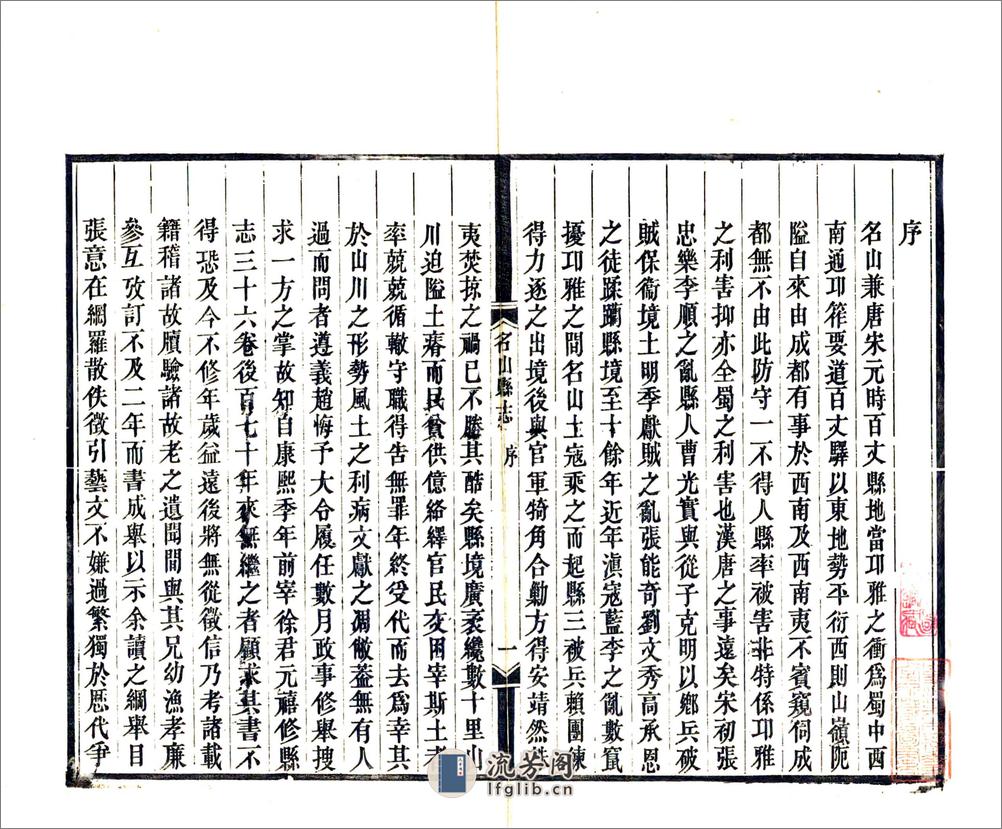 序
名山兼唐宋元時百丈縣地當邛雅之衝爲蜀中西
南通邛筰要道百丈驛以東地勢平衍西則山嶺阨
隘自來由成都有事於西南及西南夷不賓窺伺成
都無不由此防守一不得人縣率被害非特係邛雅
之利害抑亦全蜀之利害也漢唐之事遠矣宋初張
忠樂李順之亂縣人曹光實與從子克明以鄉兵破
賊保衞境土明季獻賊之亂張能奇劉文秀高承恩
之徒蹂躪縣境至十餘年近年滇寇藍李之亂數竄
擾邛雅之間名山土寇乘之而起縣三被兵賴團練
得力逐之出境後與官軍犄角合勦方得安靖然
名山縣志
序
一
夷焚掠之禍已不勝其酷矣縣境廣袤纔數十里山
川迫隘土瘠而民貧供億絡繹官民交困宰斯土者
率兢兢循轍守職得告無罪年終受代而去爲幸其
於山川之形勢風土之利病文獻之凋敝葢無有人
過而問者遵義趙悔予大令履任數月政事修舉搜
求一方之掌故知自康熙季年前宰徐君元禧修縣
志三十六卷後百七十年來無繼之者顧求其書不
得恐及今不修年歲益遠後將無從徵信乃考諸載
籍稽諸故牘驗諸故老之遺聞間與其兄幼漁孝廉
參互攷訂不及二年而書成舉以示余讀之綱舉目
張意在網羅散佚徵引藝文不嫌過繁獨於歷代爭
流芳阁
lfglib.cn